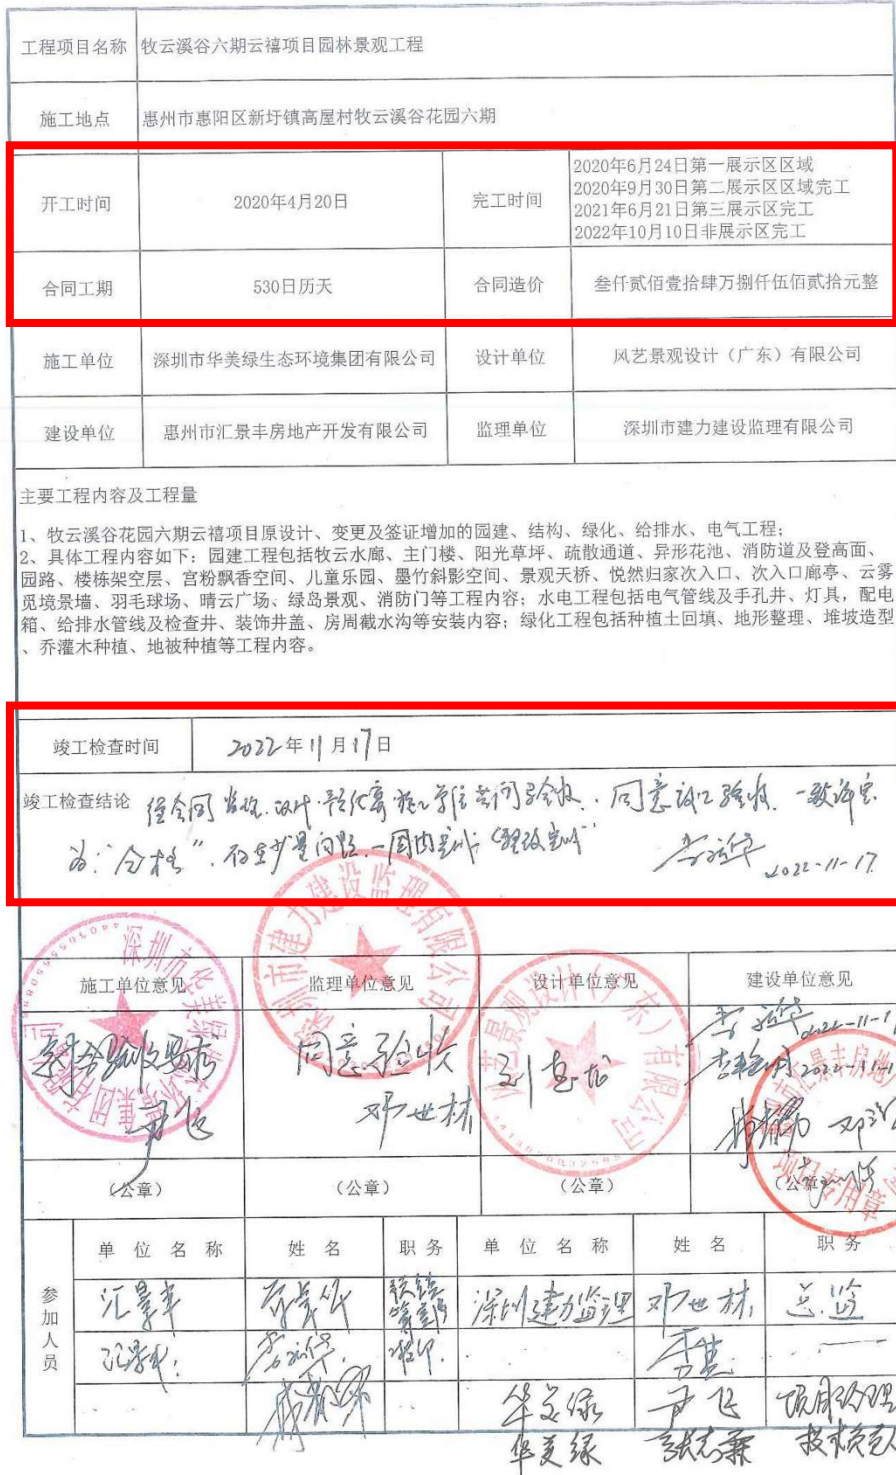 工程项目名称 牧云溪谷六期云禧项目园林景观工程
施工地点 惠州市惠阳区新圩镇高屋村牧云溪谷花园六期
开工时间 2020年4月20日 完工时间 2020年6月24日第一展示区区域
2020年9月30日第二展示区区域完工
2021年6月21日第三展示区完工
2022年10月10日非展示区完工
合同工期 530日历天 合同造价 叁仟贰佰壹拾肆万捌仟伍佰贰拾元整
施工单位 深圳市华美绿生态环境集团有限公司 设计单位 风艺景观设计（广东）有限公司
建设单位 惠州市汇景丰房地产开发有限公司 监理单位 深圳市建力建设监理有限公司
主要工程内容及工程量
1、牧云溪谷花园六期云禧项目原设计、变更及签证增加的园建、结构、绿化、给排水、电气工程；
2、具体工程内容如下：园建工程包括牧云水廊、主门楼、阳光草坪、疏散通道、异形花池、消防道及登高面、
园路、楼栋架空层、宫粉飘香空间、儿童乐园、墨竹斜影空间、景观天桥、悦然归家次入口、次入口廊亭、云雾
觅境景墙、羽毛球场、晴云广场、绿岛景观、消防门等工程内容；水电工程包括电气管线及手孔井、灯具，配电
箱、给排水管线及检查井、装饰井盖、房周截水沟等安装内容；绿化工程包括种植土回填、地形整理、堆坡造型
、乔灌木种植、地被种植等工程内容。
竣工检查时间 2022年11月17日
竣工检查结论 同意竣工验收 一致评定
为："合格"
2022-11-17
深圳市建力建设监理有限公司
深圳市华美绿生态环境集团有限公司
风艺景观设计（广东）有限公司
施工单位意见 监理单位意见 设计单位意见 建设单位意见
符合验收要求 同意验收
尹飞 邓世林
项目专用章
（公章） （公章） （公章） （公章）
参加人员
单位名称 姓名 职务 单位名称 姓名 职务
汇景丰 深圳建力监理 邓世林 总监
汇景丰
华美绿 尹飞 项目经理
华美绿 技术负责人